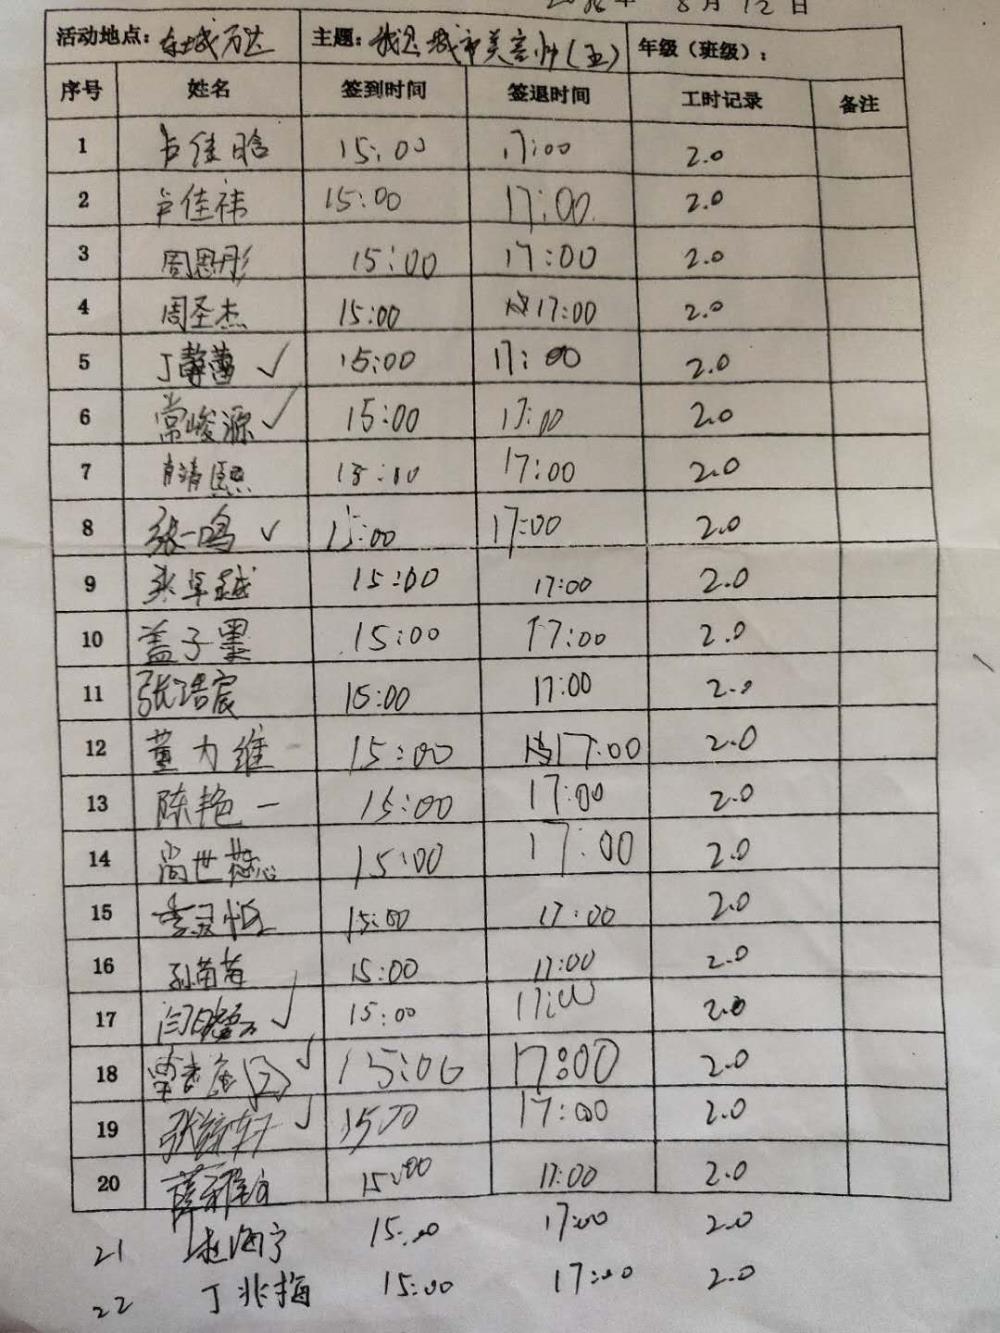 8月12日
活动地点：东城万达 主题：我是城市美容师（五） 年级（班级）：
序号 姓名 签到时间 签退时间 工时记录 备注
1 卢佳晗 15:00 17:00 2.0
2 卢佳祎 15:00 17:00 2.0
3 周恩彤 15:00 17:00 2.0
4 周圣杰 15:00 17:00 2.0
5 丁 ✓ 15:00 17:00 2.0
6 常峻源 ✓ 15:00 17:00 2.0
7 肖靖熙 15:00 17:00 2.0
8 张一鸣 ✓ 15:00 17:00 2.0
9 卓越 15:00 17:00 2.0
10 盖子墨 15:00 17:00 2.0
11 张浩宸 15:00 17:00 2.0
12 董力维 15:00 17:00 2.0
13 陈艳一 15:00 17:00 2.0
14 尚世 15:00 17:00 2.0
15 15:00 17:00 2.0
16 孙苗苗 15:00 17:00 2.0
17 闫 ✓ 15:00 17:00 2.0
18 ✓ 15:00 17:00 2.0
19 张 轩 ✓ 1500 17:00 2.0
20 薛 15:00 17:00 2.0
21 赵海宁 15:00 17:00 2.0
22 丁兆梅 15:00 17:00 2.0